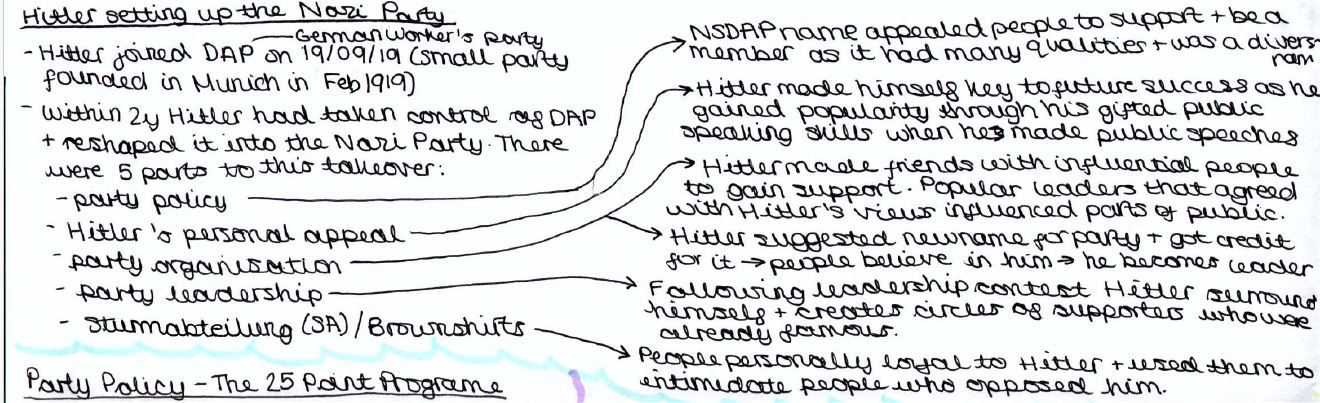 Hitler setting up the Nazi Party
German Worker's party
- Hitler joined DAP on 19/09/19 (small party
founded in Munich in Feb 1919)
- Within 2y Hitler had taken control of DAP
+ reshaped it into the Nazi Party. There
were 5 parts to this takeover:
- party policy
- Hitler's personal appeal
- party organisation
- party leadership
- Sturmabteilung (SA)/Brownshirts
Party Policy - The 25 Point Programe
NSDAP name appealed people to support + be a
member as it had many qualities + was a divers
nam
Hitler made himself key to future success as he
gained popularity through his gifted public
speaking skills when he made public speeches
Hitler made friends with influential people
to gain support. Popular leaders that agreed
with Hitler's views influenced parts of public.
Hitler suggested new name for party + got credit
for it → people believe in him → he becomes leader
Following leadership contest Hitler surround
himself + creates circles of supporters who were
already famous.
People personally loyal to Hitler + used them to
intimidate people who opposed him.